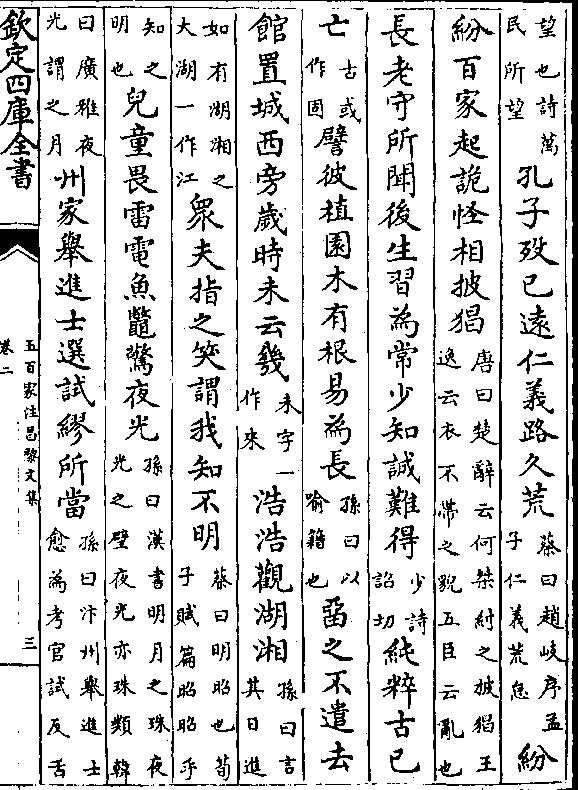 望也詩萬民所望孔子歿已遠仁義路久荒蔡曰趙岐序孟子仁義荒怠紛
紛百家起詭怪相披猖唐曰楚辭云何桀紂之披猖王逸云衣不帶之貌五臣云亂也
長老守所聞後生習為常少知誠難得少詩詔切純粹古已
亡古或作固譬彼植園木有根易為長孫曰以喻籍也留之不遣去
館置城西旁歲時未云幾未字一作來浩浩觀湖湘孫曰言其日進
如有湖湘之大湖一作江衆夫指之笑謂我知不明蔡曰明昭也荀子賦篇昭昭乎
知之明也兒童畏雷電魚鼈驚夜光孫曰漢書明月之珠夜光之璧夜光亦珠類韓
曰廣雅夜光謂之月州家舉進士選試繆所當孫曰汴州舉進士愈為考官試反舌
欽定四庫全書
五百家注昌黎文集
卷二
三